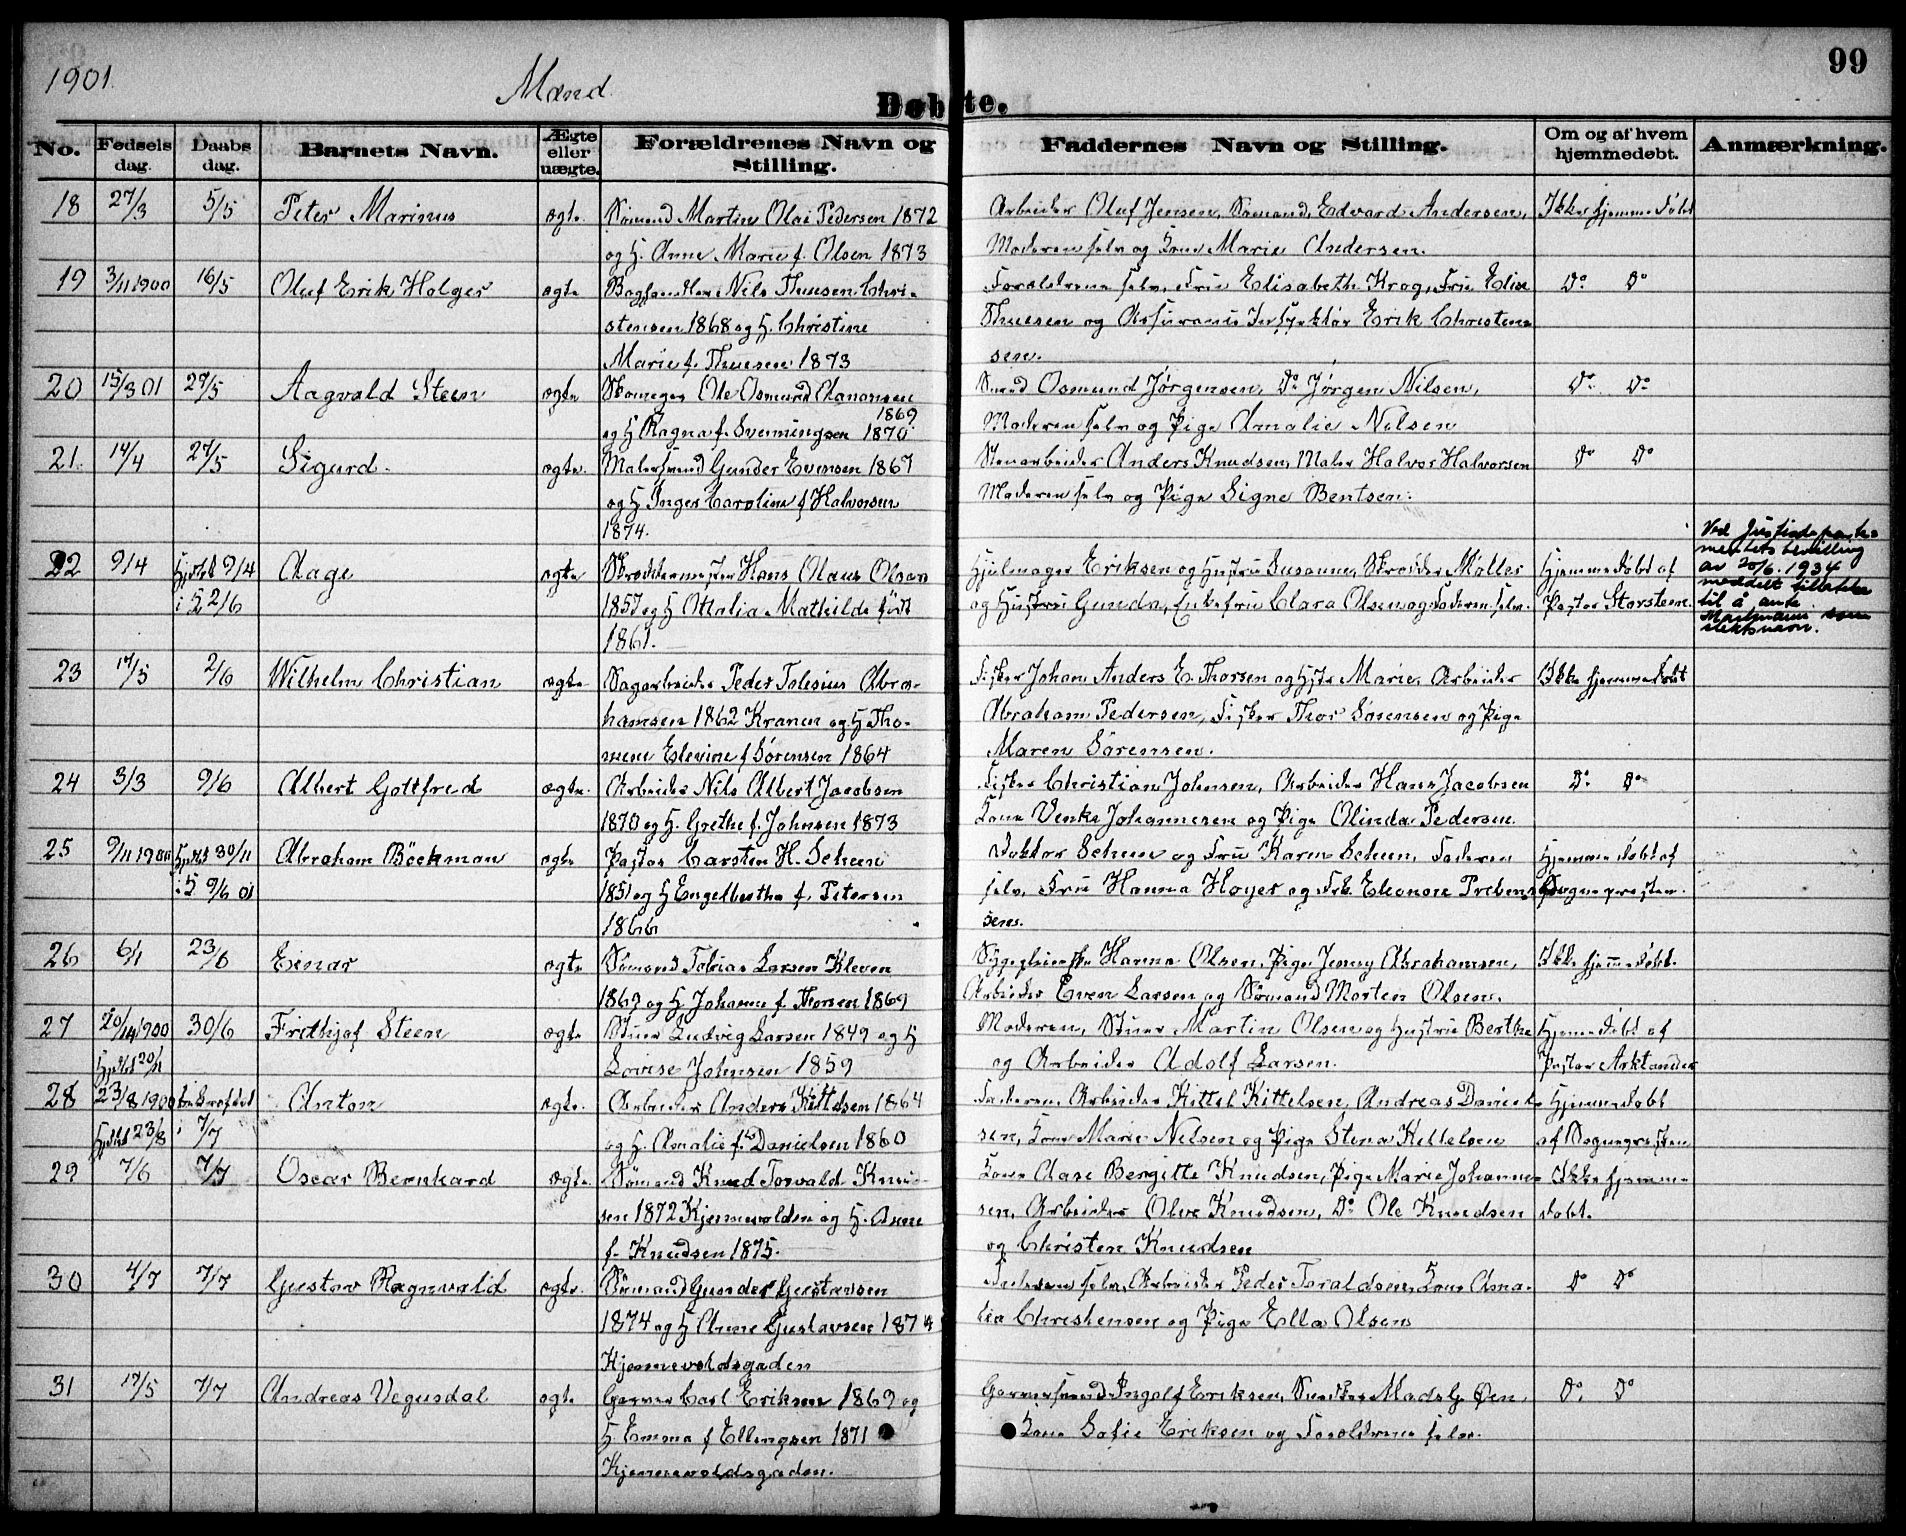 1901.
Mænd.
99
Døbte.
No. Fødsels dag. Daabs dag. Barnets Navn. Ægte eller uægte. Forældrenes Navn og Stilling. Faddernes Navn og Stilling. Om og af hvem hjemmedøbt. Anmærkning.
18 27/3 5/5 Peter Marinus ægte. Sømand Martin Olai Pedersen 1872 Arbeider Oluf Jensen, Sømand Edvard Andersen, Ikke hjemmedøbt
og H. Anne Marie f. Olsen 1873 Moderen selv og Kone Marie Andersen.
19 3/11 1900 16/5 Oluf Erik Holger ægte Boghandler Nils Thuesen Chri- Forældrene selv, Fru Elisabeth Krog, Fru Elise Do Do
stensen 1868 og H. Christine Thuesen og Assurance Inspektør Erik Christen-
Marie f. Thuesen 1873 sen.
20 15/3 01 27/5 Aagvald Steen ægte Skomager Ole Osmund Aanonsen Smed Osmund Jørgensen, Do Jørgen Nilsen, Do Do
1869
og H Ragna f. Svenningsen 1870 Moderen selv og Pige Amalie Nilsen
21. 14/4 27/5 Sigurd. ægte. Malersvend Gunder Evensen 1867 Stenarbeider Anders Knudsen, Maler Halvor Halvorsen Do Do
og H Inger Caroline f Halvorsen Moderen selv og Pige Signe Bentsen.
1874.
22 9/4 hjdbt 9/4 Aage ægte Skræddermester Hans Olaus Olsen Hjulmager Eriksen og Hustru Susanne, Skræder Møller Hjemmedøbt af
i K 2/6 1857 og H Othalia Mathilde født og Hustru Gunda, Enkefru Clara Olsen og Faderen selv. Pastor Storsteen.
1861.
Ved Justisdeparte-
mentets bevilling
av 20/6. 1934
meddelt tillatelse
til å anta
som
slektsnavn.
23 17/3 2/6 Wilhelm Christian ægte Sagarbeider Peder Tolesius Abra- Fisker Johan Anders E. Thorsen og Hstr Marie, Arbeider Ikke hjemmedøbt
hamsen 1862 Kranen og H Tho- Abraham Pedersen, Fisker Thor Sørensen og Pige
mene Elevine f Sørensen 1864 Maren Sørensen.
24 3/3 9/6 Albert Gottfred ægte. Arbeider Nils Albert Jacobsen Fisker Christian Johnsen, Arbeider Hans Jacobsen Do Do
1870 og H. Grethe f. Johnsen 1873 Kone Venke Johannesen og Pige Olinda Pedersen.
25 9/11 1900 hjdbt 30/11 Abraham Böckman ægte Pastor Carsten H. Scheen Doktor Scheen og Fru Karen Scheen, Faderen Hjemmedøbt af
i K 9/6 01 1851 og H Engelbertha f. Petersen selv, Fru Hanna Høyer og Frk. Eleonore Preben- Sognepresten.
1866 sen.
26 6/1 23/6 Einar ægte Sømand Tobias Larsen Kleven Sygepleierske Hanna Olsen, Pige Jenny Abrahamsen, Ikke hjemmedøbt.
1869 og H Johanne f. Thorsen 1869 Arbeider Even Larsen og Sømand Morten Olsen.
27 20/11 1900 30/6 Frithjof Steen ægte Stuer Ludvig Larsen 1849 og H Moderen, Stuer Martin Olsen og Hustru Berthe Hjemmedøbt af
hjdbt 20/11 Lovise Johnsen 1859 og Arbeider Adolf Larsen. Pastor Arktander
28 23/8 1900 bekræftet Anton ægte. Arbeider Anders Kittelsen 1864 Faderen, Arbeider Kittel Kittelsen, Andreas Daniel- Hjemmedøbt
hjdbt 23/8 i 7/7 og H. Amalie f. Danielsen 1860 sen, Kone Marie Nilsen og Pige Stena Kittelsen af Sognepresten
29 7/6 7/7 Oscar Bernhard ægte. Sømand Knud Torvald Knud- Kone Aase Bergitte Knudsen, Pige Marie Johanne- Ikke hjemme-
sen 1872 Kjennevolden og H. Anne sen, Arbeider Olve Knudsen, Do Ole Knudsen døbt.
f. Knudsen 1875. og Christen Knudsen
30 4/7 7/7 Gustav Ragnvald ægte. Sømand Gunder Gustavsen Faderen selv, Arbeider Peder Toraldsen, Kone Ama- Do Do
1874 og H Anne Gustavsen 1874 lia Christensen og Pige Ella Olsen
Kjennevoldsgaden
31 17/5 7/7 Andreas Vegusdal ægte. Garver Carl Eriksen 1869 og Garversvend Ingolf Eriksen, Snedker Mads G. Øen, Do Do
H Emma f Ellingsen 1871 Kone Sofie Eriksen og Forældrene selv.
Kjennevoldsgaden.